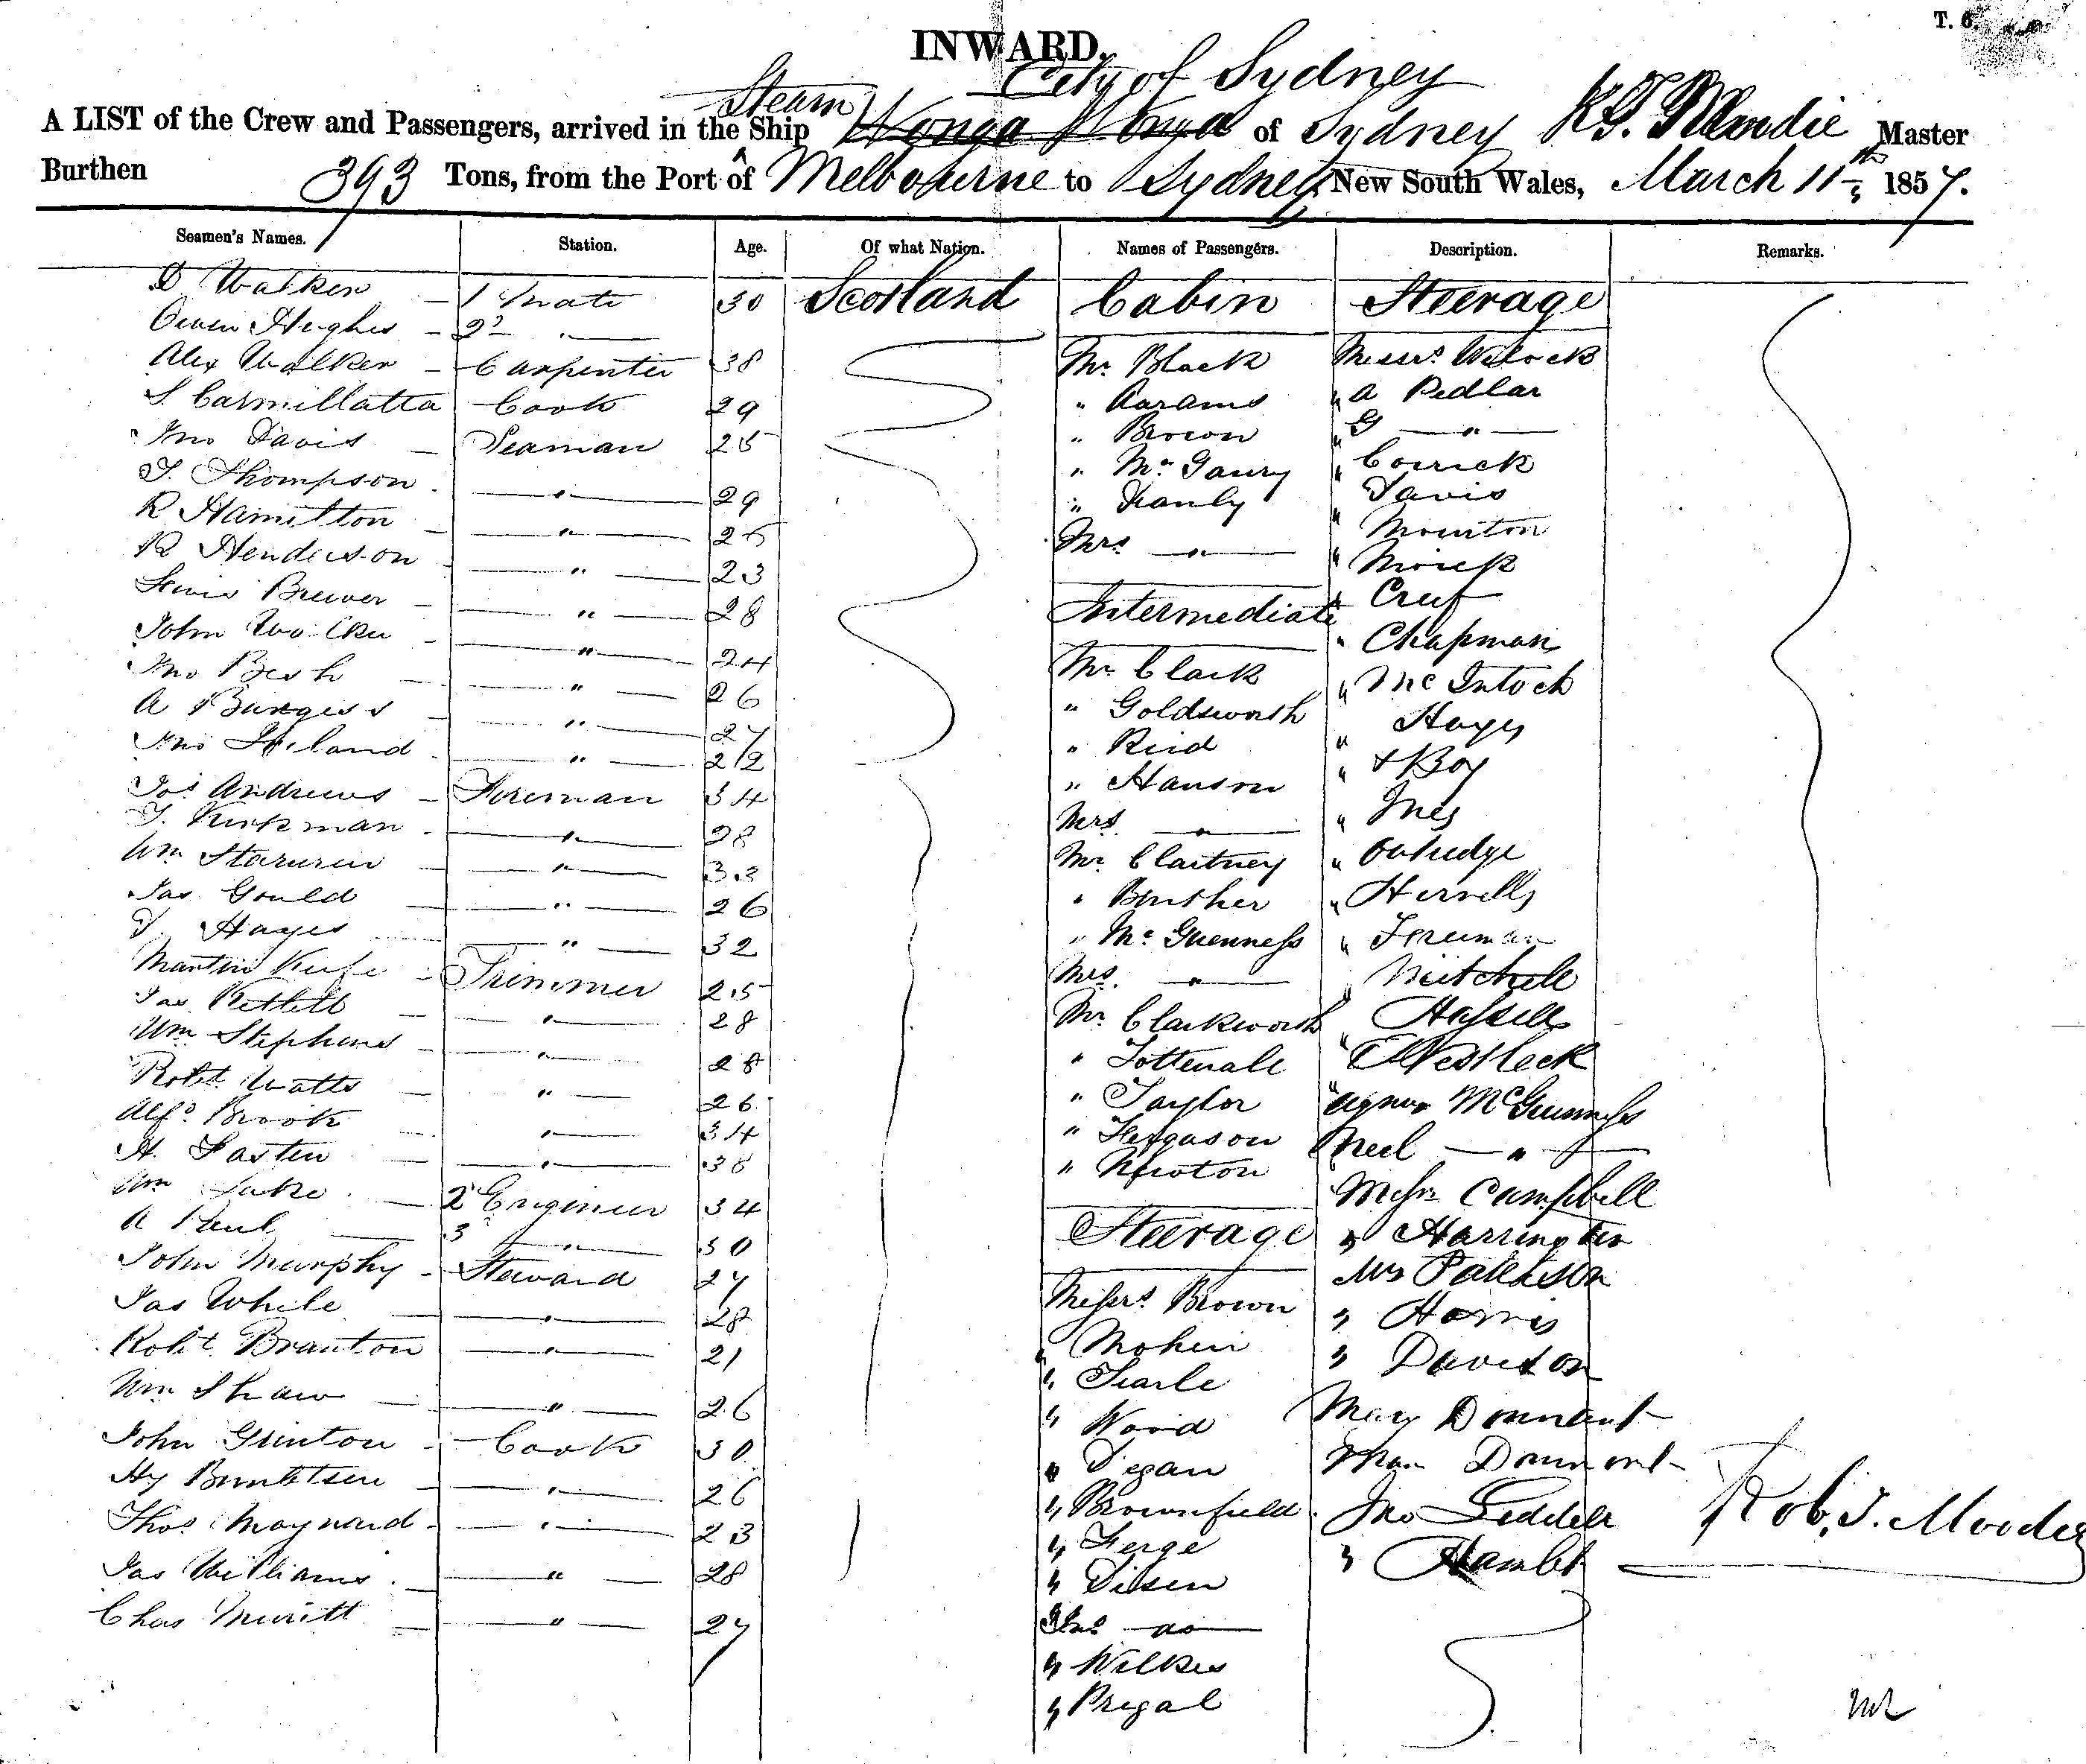 T. 6.
INWARD.
City of Sydney
A LIST of the Crew and Passengers, arrived in the Steam Ship Wonga Wonga of Sydney Master
Burthen 393 Tons, from the Port of Melbourne to Sydney New South Wales, March 11th 1857.
Seamen's Names. Station. Age. Of what Nation. Names of Passengers. Description. Remarks.
D Walker 1 Mate 30 Scotland
Owen Hughes 2d "
Alex Walker Carpenter 38
Cook 29
Jno Davis Seaman 25
T. Thompson " 29
R Hamilton " 26
R Henderson " 23
Lewis Brewer " 28
John " 24
Jno " 26
A Burgess " 27
Jno " 22
Jos Andrews Fireman 34
T. Kirkman " 28
Wm " 33
Jas Gould " 26
T. Hayes " 32
Martin Trimmer 25
Jas " 28
Wm Stephens " 28
Robt Watts " 26
Alfd. Brook " 34
H. " 38
Wm Luke 2d Engineer 34
A Paul 3 " 30
John Murphy Steward 27
Jas White " 28
Robt Branton " 21
Wm Shaw " 26
John Grinton Cook 30
Hy " 26
Thos Maynard " 23
Jas Williams " 28
Chas Merritt " 27
Cabin
Mr. Black
" Aarams
" Brown
" Mc Gaury
" Hanly
Mrs "
Intermediate
Mr. Clark
" Goldsworth
" Reid
" Hanson
Mrs. "
Mr. Clartney
" Brusher
" Mc Guenness
Mrs. "
Mr. Clarkworth
" Tottenale
" Taylor
" Fergason
" Newton
Steerage
Messrs. Brown
" Mohen
" Searle
" Wood
" Degan
" Brownfield
" Ferge
" Dilsen
do
" Wilkes
" Pregal
Steerage
Messrs. Wilcock
" A Pedlar
" G "
" Corrick
Davis
" Mounton
" Monck
"
" Chapman
" McIntoch
" Hayes
" & Boy
" Ines
" Outredge
"
" Freeman
" Mitchell
" Hassell
" Westleck
" Agnes McGuinness
Neil "
Messrs Campbell
" Harrington
Mrs Paterson
" Harris
" Davidson
May
Jno Liddell
"
Rob. T. Moodie